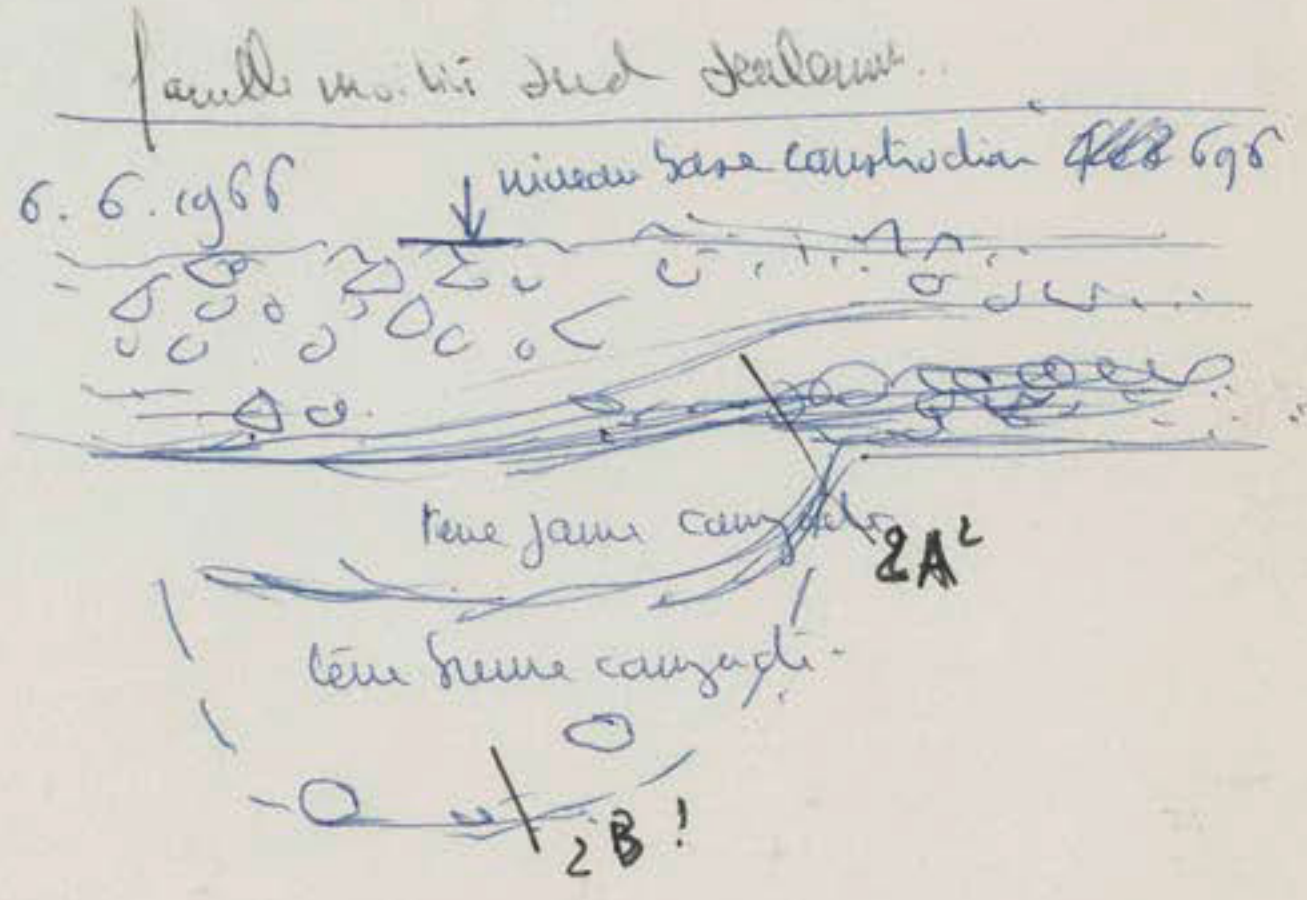 fouille moitié sud seulement.
6.6.1966
niveau base construction 696
terre jaune compacte
2A²
terre brune compacte
2B!